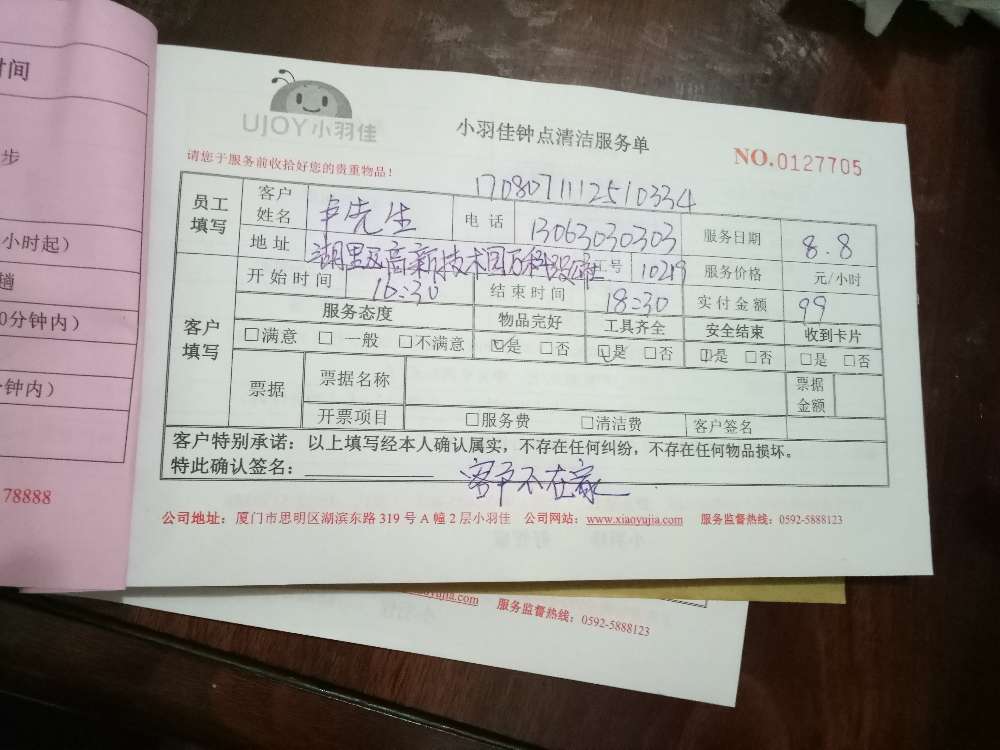 时间
步
小时起）
趟
0分钟内）
分钟内）
78888
UJOY小羽佳
小羽佳钟点清洁服务单
NO.0127705
请您于服务前收拾好您的贵重物品！
1708071112510334
员工填写
客户姓名 卢先生 电话 13063030303 服务日期 8.8
地址 湖里区高新技术园万科 工号 10219 服务价格 元/小时
客户填写
开始时间 16:30 结束时间 18:30 实付金额 99
服务态度 物品完好 工具齐全 安全结束 收到卡片
□满意 □一般 □不满意 □是 □否 □是 □否 □是 □否 □是 □否
票据 票据名称 票据金额
开票项目 □服务费 □清洁费 客户签名
客户特别承诺：以上填写经本人确认属实，不存在任何纠纷，不存在任何物品损坏。
特此确认签名： 客户不在家
公司地址：厦门市思明区湖滨东路319号A幢2层小羽佳 公司网站：www.xiaoyujia.com 服务监督热线：0592-5888123
aoyujia.com 服务监督热线：0592-5888123